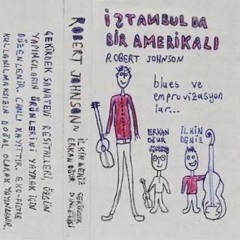 İSTANBUL DA
BİR AMERİKALI
ROBERT JOHNSON
blues ve
emprovizasyon
lar...
ERKAN
OĞUR
İLKİN
DENİZ
ROBERT JOHNSON
İLKİN DENİZ
ERKAN OĞUR
GEKİRDEK SANATEVİ RESİTALLERİ, ÖZGÜN
YAPIMCILARIN ÜRÜNLERİNİ YAYMAK İÇİN
DÜZENLENİR. CANLI KAYITTIR. EKO-FİLTRE
KULLANILMAKSIZIN DOĞAL OLARAK YAYINLANIR.